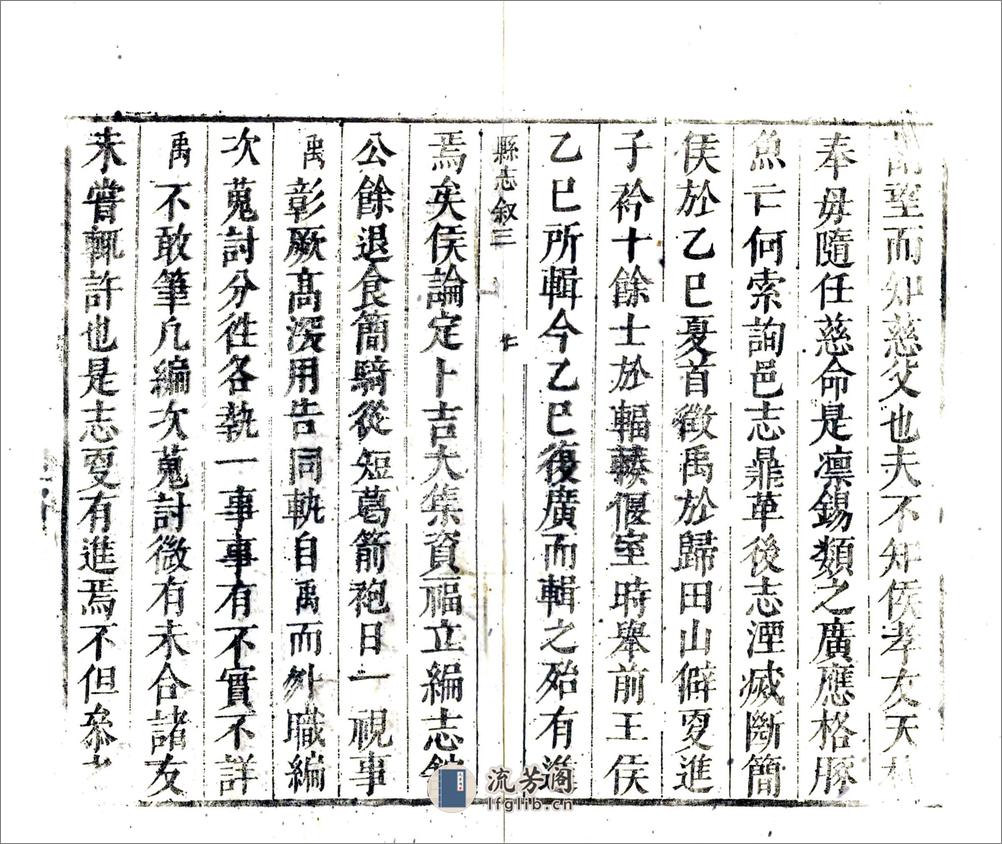 望而知慈父也夫不知侯孝友天
奉毋隨任慈命是凛錫類之廣應格豚
魚亡何索詢邑志鼎革後志湮滅斷簡
侯於乙巳夏首徵禹於歸田山僻夏進
子衿十餘士於輻輳偃室時舉前王侯
乙巳所輯今乙巳復廣而輯之殆有進
縣志敘三
七
焉矣侯論定卜吉大集資福立編志舘
公餘退食簡騎從短葛箭袍日一視事
禹彰厥高深用告同軌自禹而外職編
次蒐討分徃各執一事事有不實不詳
禹不敢筆凡編次蒐討微有未合諸友
未嘗輒許也是志夏有進焉不但叅
流芳阁
lfglib.cn